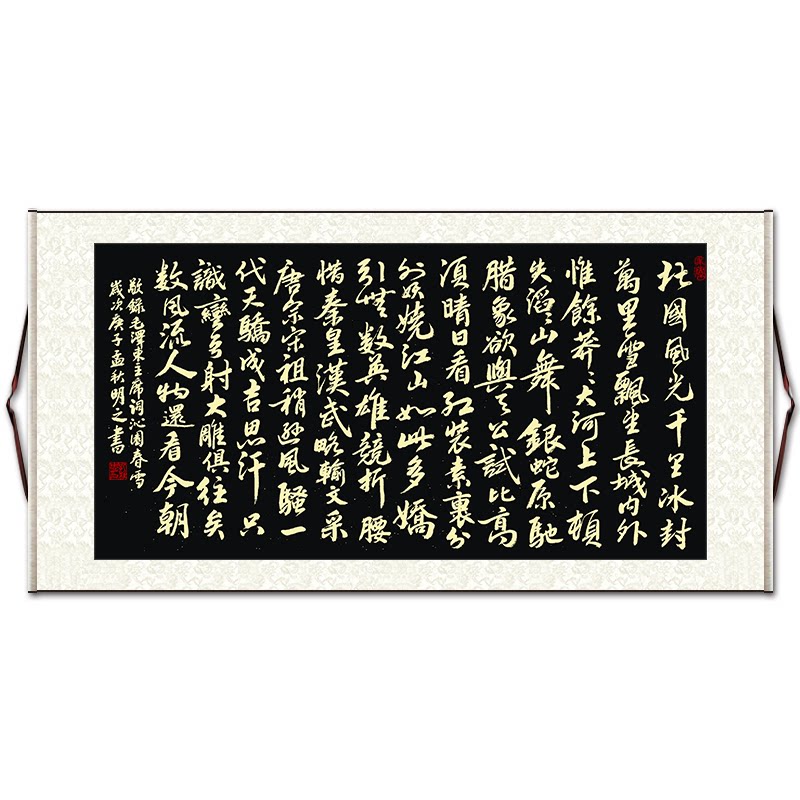 北國風光千里冰封
萬里雪飄望長城內外
惟餘莽〻大河上下頓
失滔〻山舞銀蛇原馳
腊象欲與天公試比高
須晴日看红裝素裹分
外妖嬈江山如此多嬌
引無数英雄競折腰
惜秦皇漢武略輸文采
唐宗宋祖稍遜風騷一
代天驕成吉思汗只
識彎弓射大雕俱往矣
数風流人物還看今朝
敬錄毛澤東主席詞沁園春雪
歲次庚子孟秋明之書